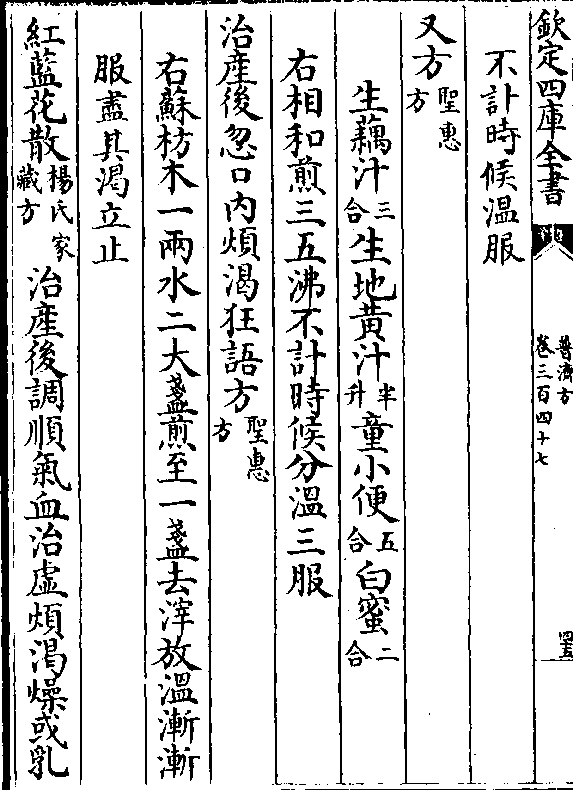 欽定四庫全書
普濟方
卷三百四十七
四五
不計時候溫服
又方聖惠方
生藕汁三合生地黃汁半升童小便五合白蜜二合
右相和煎三五沸不計時候分溫三服
治產後忽口內煩渴狂語方聖惠方
右蘇枋木一兩水二大盞煎至一盞去滓放溫漸漸
服盡其渴立止
紅藍花散楊氏家藏方治產後調順氣血治虛煩渴燥或乳